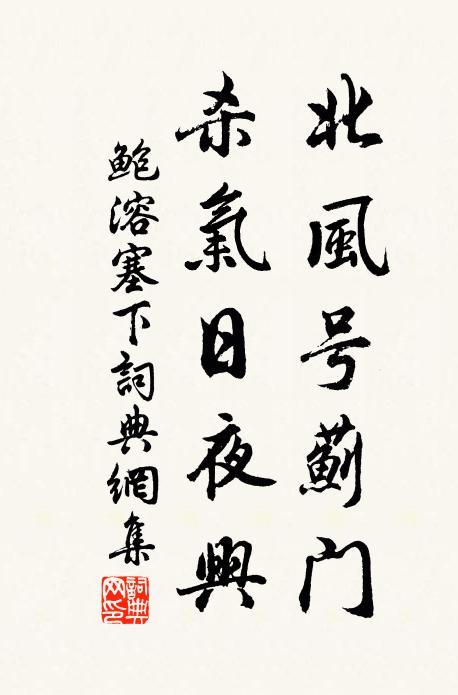 北風号薊门
杀氣日夜興
鲍溶塞下詞典網集
詞典網印